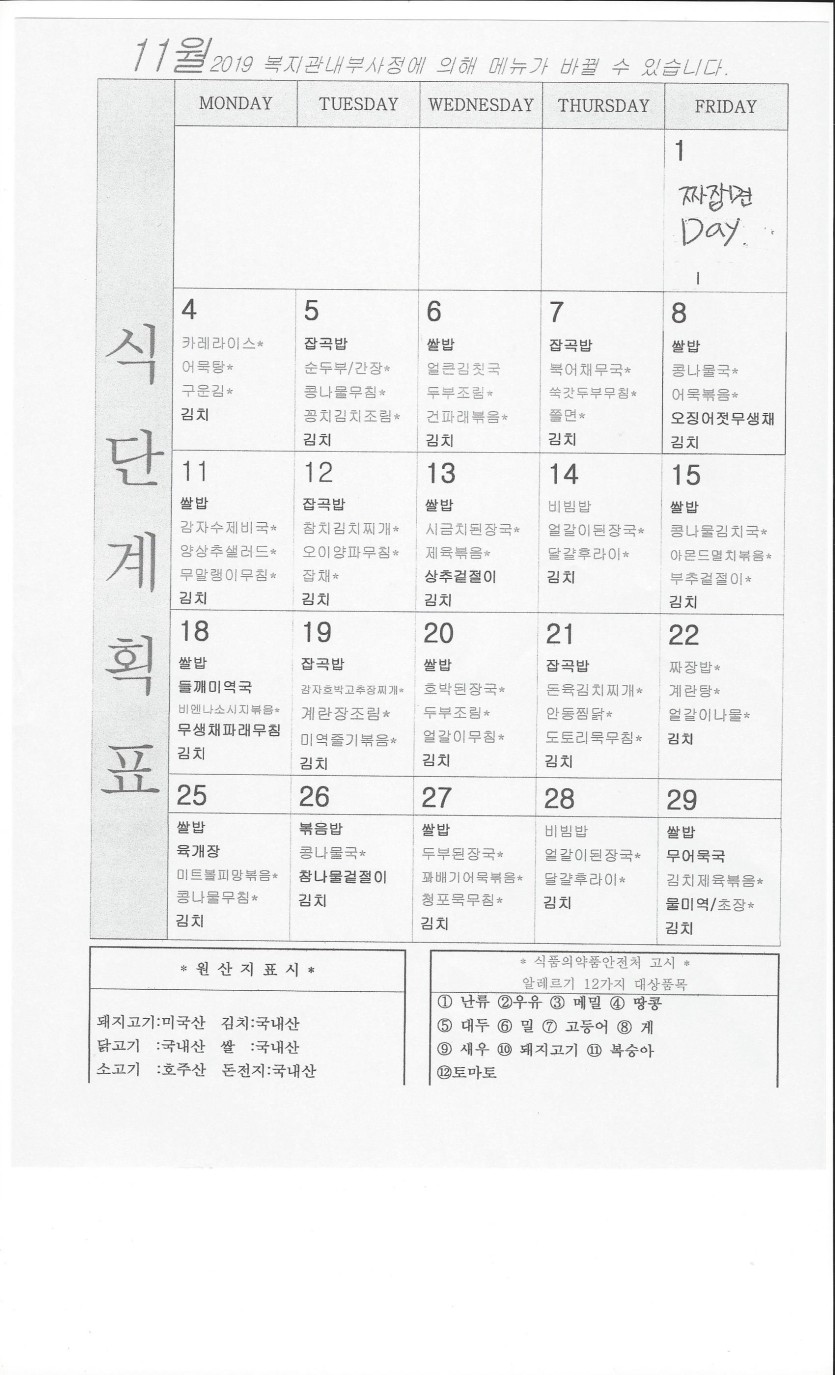 11월 2019 복지관내부사정에 의해 메뉴가 바뀔 수 있습니다.
식단계획표
MONDAY TUESDAY WEDNESDAY THURSDAY FRIDAY
1
짜장면
Day.
4
카레라이스*
어묵탕*
구운김*
김치
5
잡곡밥
순두부/간장*
콩나물무침*
꽁치김치조림*
김치
6
쌀밥
얼큰김칫국
두부조림*
건파래볶음*
김치
7
잡곡밥
북어채무국*
쑥갓두부무침*
쫄면*
김치
8
쌀밥
콩나물국*
어묵볶음*
오징어젓무생채
김치
11
쌀밥
감자수제비국*
양상추샐러드*
무말랭이무침*
김치
12
잡곡밥
참치김치찌개*
오이양파무침*
잡채*
김치
13
쌀밥
시금치된장국*
제육볶음*
상추겉절이
김치
14
비빔밥
얼갈이된장국*
달걀후라이*
김치
15
쌀밥
콩나물김치국*
아몬드멸치볶음*
부추겉절이*
김치
18
쌀밥
들깨미역국
비엔나소시지볶음*
무생채파래무침
김치
19
잡곡밥
감자호박고추장찌개*
계란장조림*
미역줄기볶음*
김치
20
쌀밥
호박된장국*
두부조림*
얼갈이무침*
김치
21
잡곡밥
돈육김치찌개*
안동찜닭*
도토리묵무침*
김치
22
짜장밥*
계란탕*
얼갈이나물*
김치
25
쌀밥
육개장
미트볼피망볶음*
콩나물무침*
김치
26
볶음밥
콩나물국*
참나물겉절이
김치
27
쌀밥
두부된장국*
꽈배기어묵볶음*
청포묵무침*
김치
28
비빔밥
얼갈이된장국*
달걀후라이*
김치
29
쌀밥
무어묵국
김치제육볶음*
물미역/초장*
김치
* 원 산 지 표 시 *
돼지고기:미국산 김치:국내산
닭고기 :국내산 쌀 :국내산
소고기 :호주산 돈전지:국내산
* 식품의약품안전처 고시 *
알레르기 12가지 대상품목
① 난류 ②우유 ③ 메밀 ④ 땅콩
⑤ 대두 ⑥ 밀 ⑦ 고등어 ⑧ 게
⑨ 새우 ⑩ 돼지고기 ⑪ 복숭아
⑫토마토